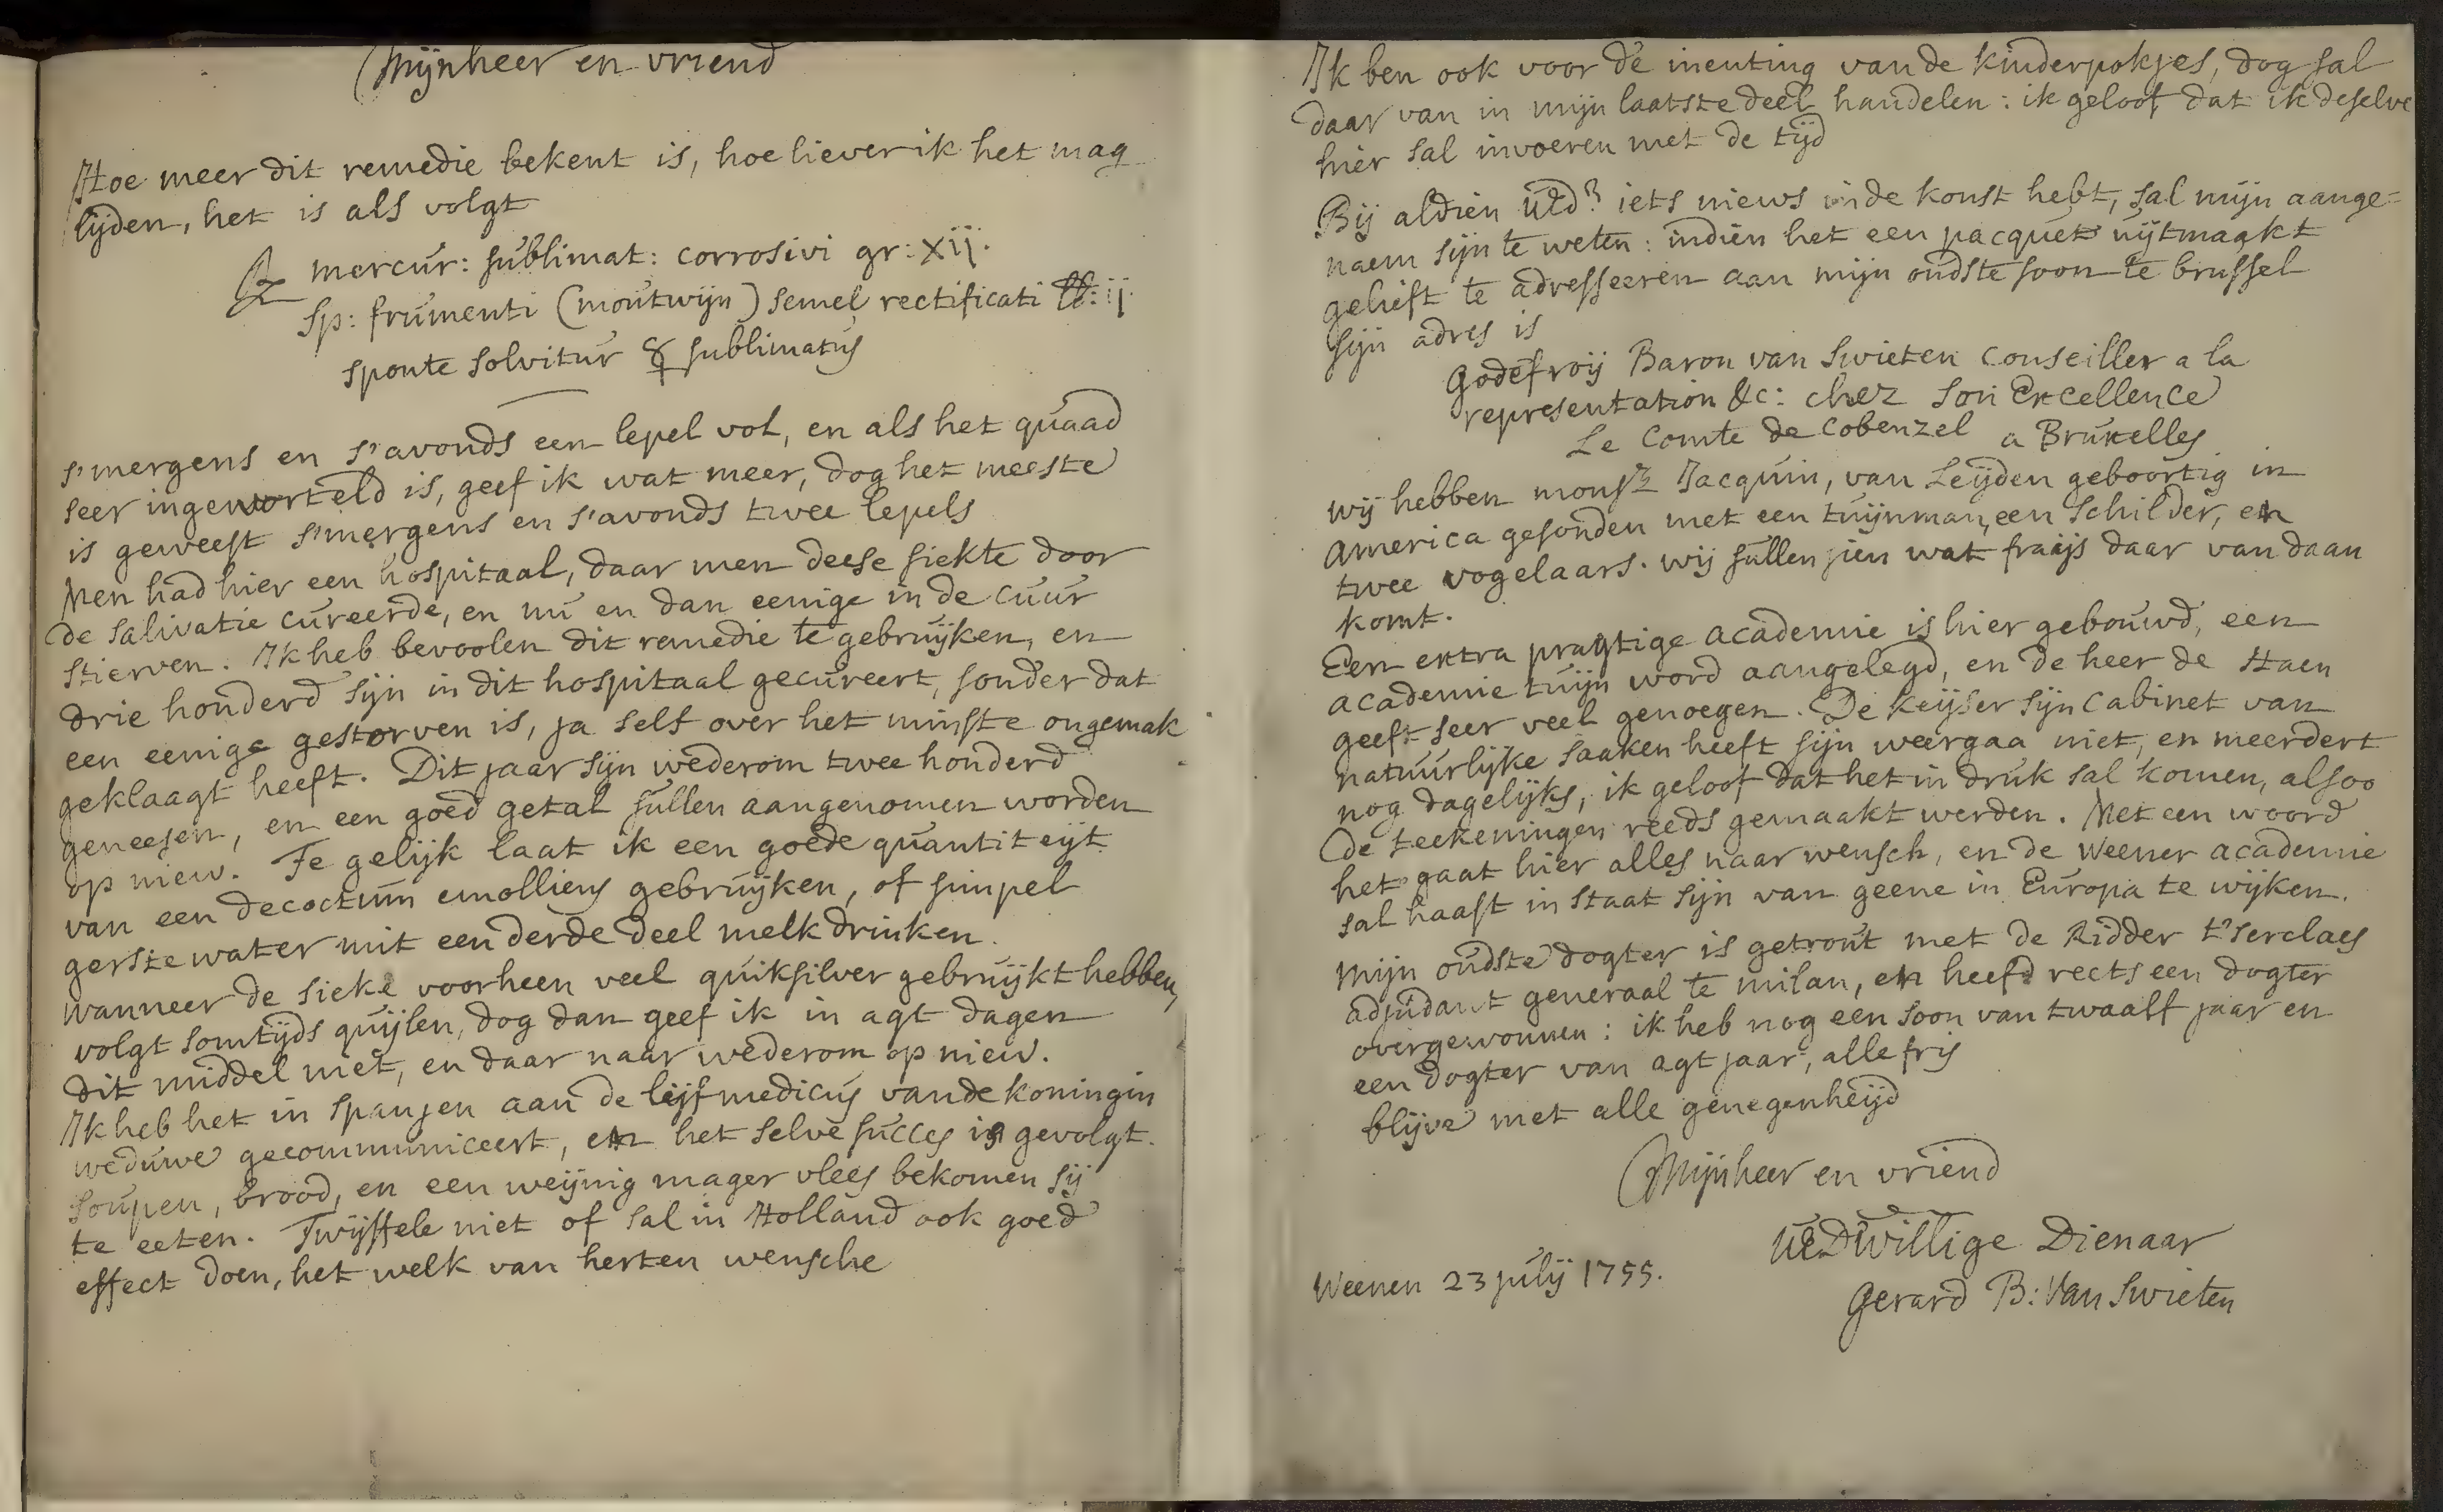 Mijnheer en vriend
Hoe meer dit remedie bekent is, hoe liever ik het mag
lijden, het is als volgt
℞ mercur: sublimat: corrosivi gr: xij.
sp: frumenti (moutwijn) semel rectificati ℔: ij.
sponte solvitur ☿ sublimatus
s'mergens en s'avonds een lepel vol, en als het quaad
seer ingeworteld is, geef ik wat meer, dog het meeste
is geweest s'mergens en s'avonds twee lepels
Men had hier een hospitaal, daar men deese siekte door
de salivatie cureerde, en nu en dan eenige in de cuur
stierven. Ik heb bevoolen dit remedie te gebruijken, en
drie honderd sijn in dit hospitaal gecureert, sonder dat
een eenige gestorven is, ja self over het minste ongemak
geklaagt heeft. Dit jaar sijn wederom twee honderd
geneesen, en een goed getal sullen aangenomen worden
op niew. Te gelijk laat ik een goede quantiteijt
van een decoctum emolliens gebruijken, of simpel
gerstewater mit een derde deel melk drinken.
wanneer de sieke voorheen veel quiksilver gebruijkt hebben,
volgt somtijds quijlen, dog dan geef ik in agt dagen
dit middel niet, en daar naar wederom op niew.
Ik heb het in Spanjen aan de leijfmedicus vande koningin
weduwe gecommuniceert, en het selve succes is gevolgt.
soupen, brood, en een weijnig mager vlees bekomen sij
te eeten. Twijffele niet of sal in Holland ook goed
effect doen, het welk van herten wensche
Ik ben ook voor de inenting van de kinderpokjes, dog sal
daar van in mijn laatste deel handelen: ik geloof dat ik deselve
hier sal invoeren met de tijd
Bij aldien UEd? iets niews in de konst hebt, sal mijn aange=
naem sijn te weten: indien het een pacquet uijtmaakt
gelieft te adresseeren aan mijn oudste soon te brussel
sijn adres is
Godefroij Baron van Swieten Conseiller a la
representation &c: chez Son Excellence
Le Comte de Cobenzel a Bruxelles
wij hebben monsr Jacquin, van Leijden geboortig in
America gesonden met een tuijnman, een Schilder, en
twee vogelaars. wij sullen sien wat fraijs daar van daan
komt.
Een extra pragtige academie is hier gebouwd, een
academie tuijn word aangelegd, en de heer de Haen
geeft seer veel genoegen. De keijser sijn Cabinet van
natuurlijke saaken heeft sijn weergaa niet, en meerdert
nog dagelijks, ik geloof dat het in druk sal komen, alsoo
de teekeningen reeds gemaakt werden. Met een woord
het gaat hier alles naar wensch, en de Weener academie
sal haast in staat sijn van geene in Europa te wijken.
Mijn oudste dogter is getrout met de Ridder t'serclaes
adjudant generaal te milan, en heeft rects een dogter
overgewonnen: ik heb nog een soon van twaalf jaar en
een dogter van agt jaar, alle fris
blijve met alle genegenheijd
Mijnheer en vriend
UEDwillige Dienaar
Weenen 23 julij 1755.
Gerard B: Van Swieten